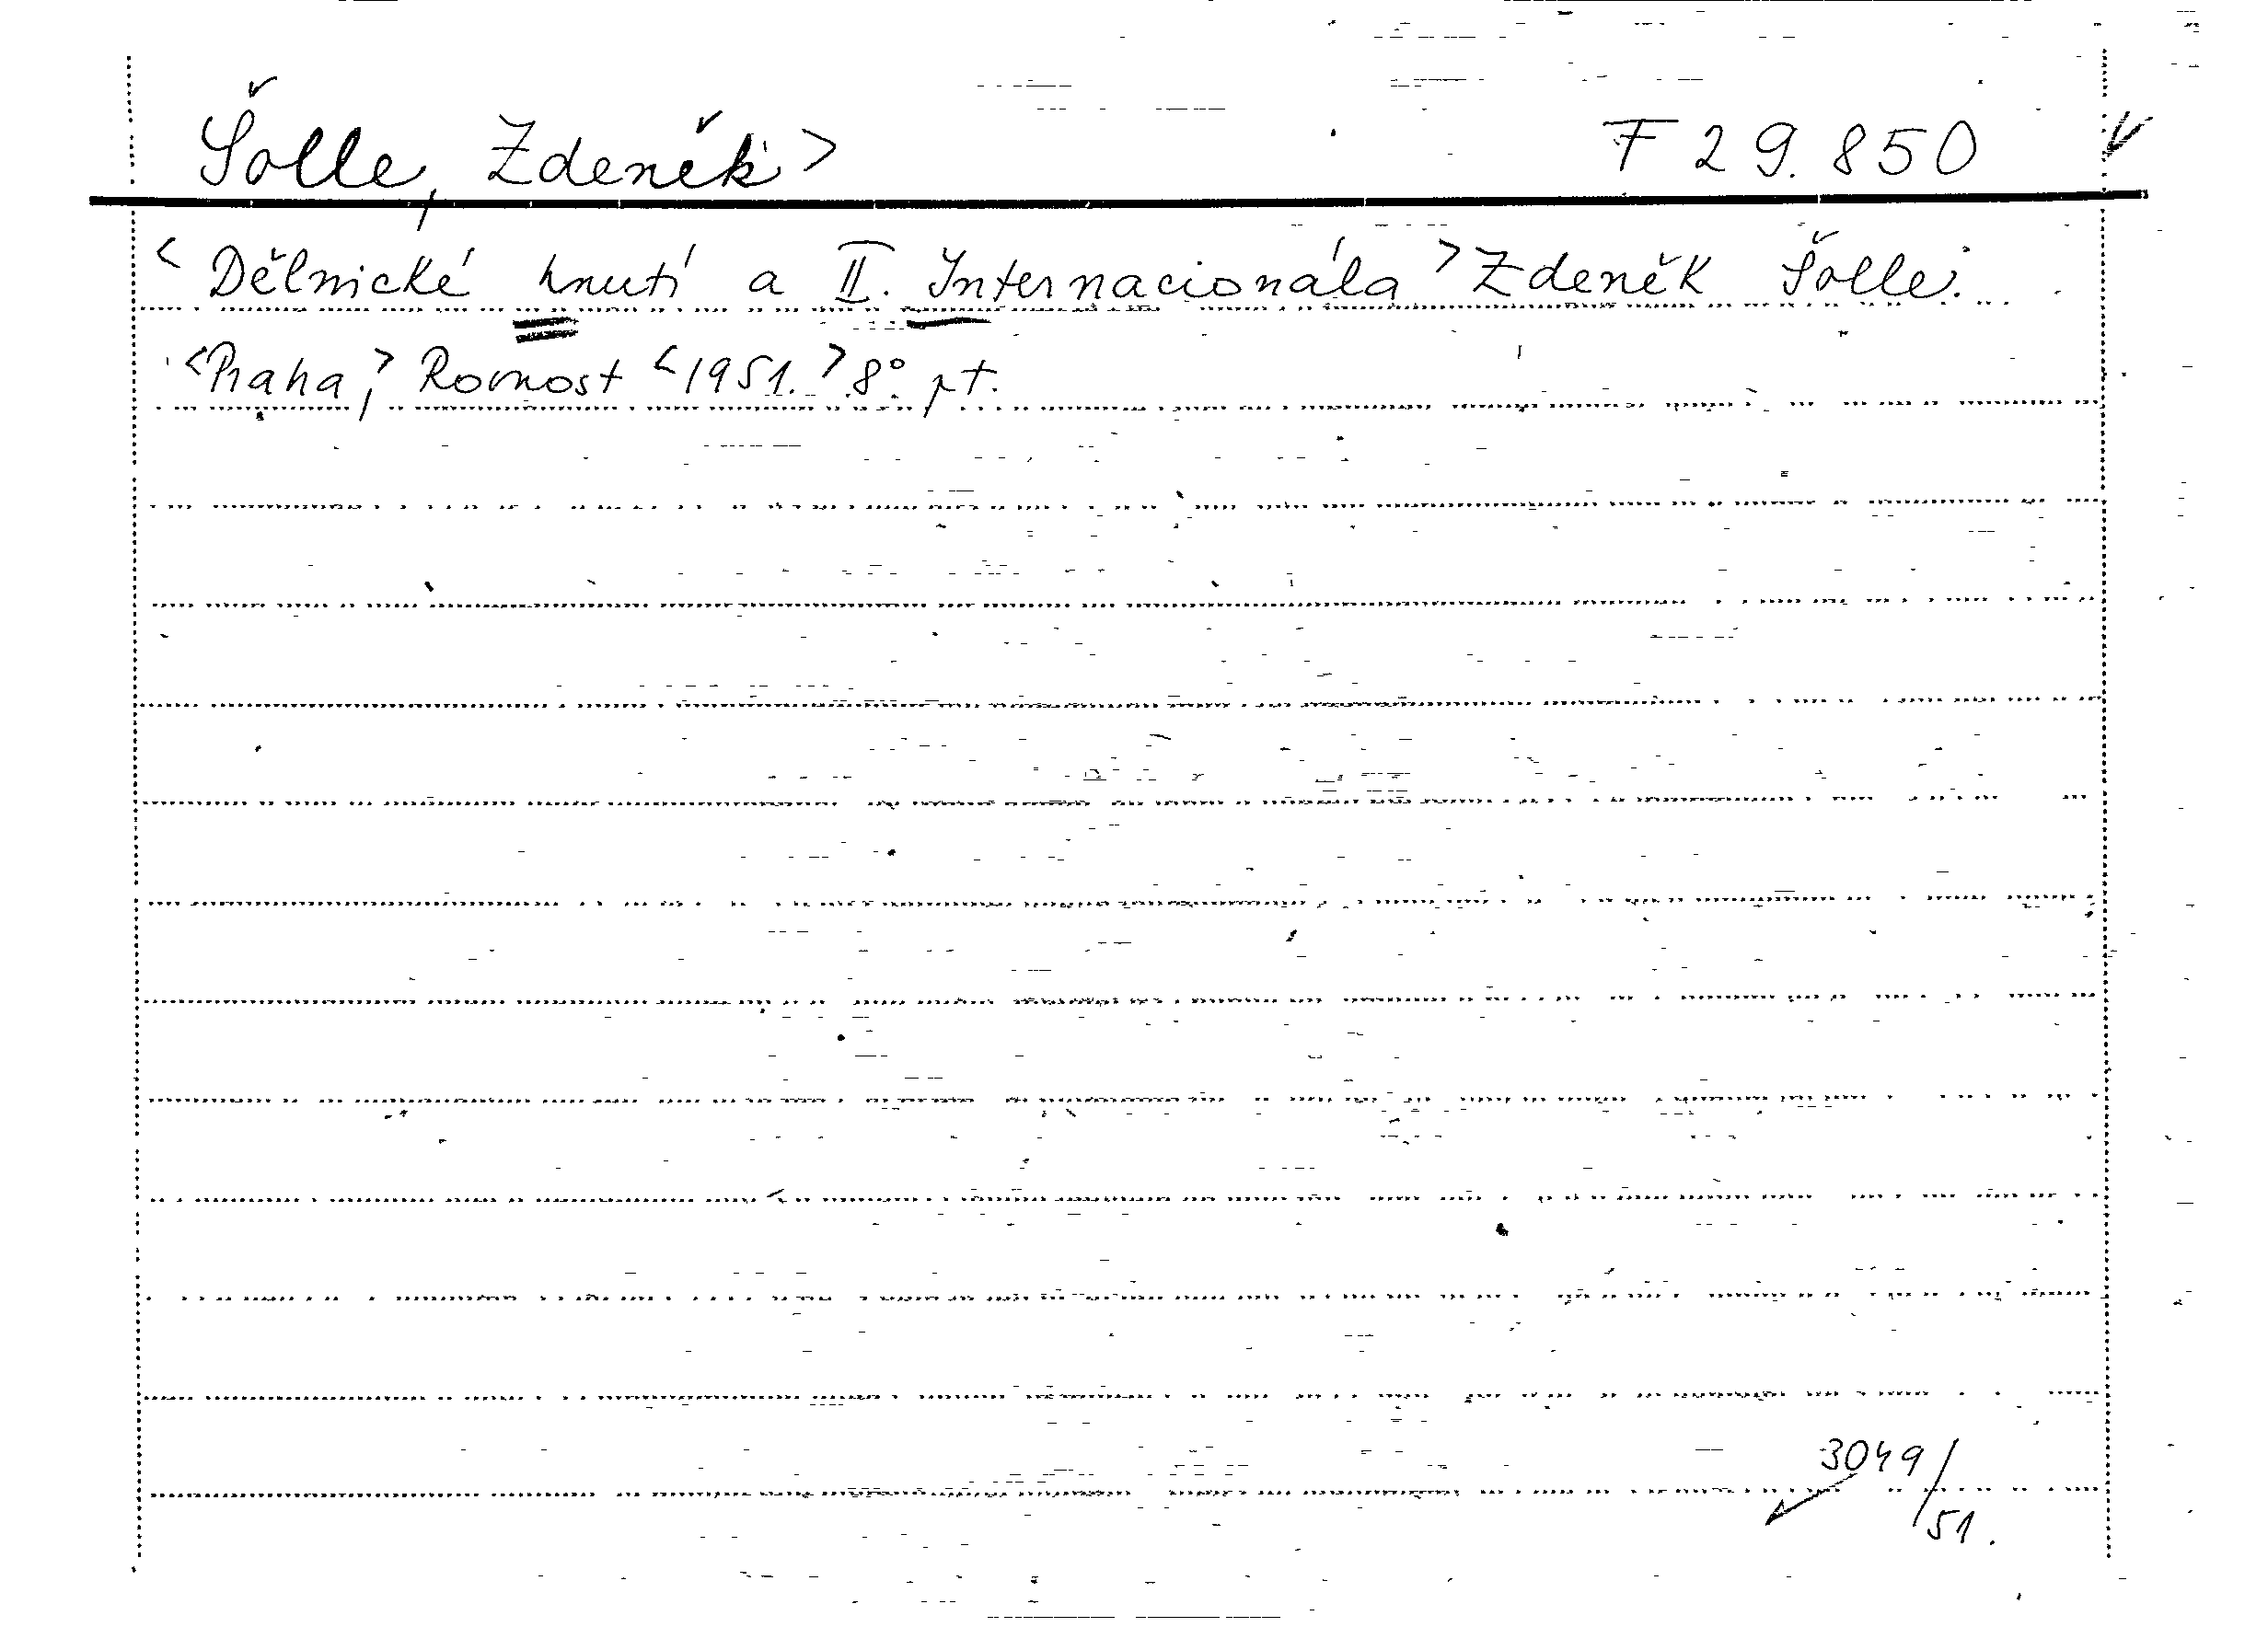 Šolle, Zdeněk > F 29.850 V
< Dělnické hnutí a II. Internacionála > Zdeněk Šolle.
< Praha, > Rovnost < 1951. > 8° pt.
3049/51.